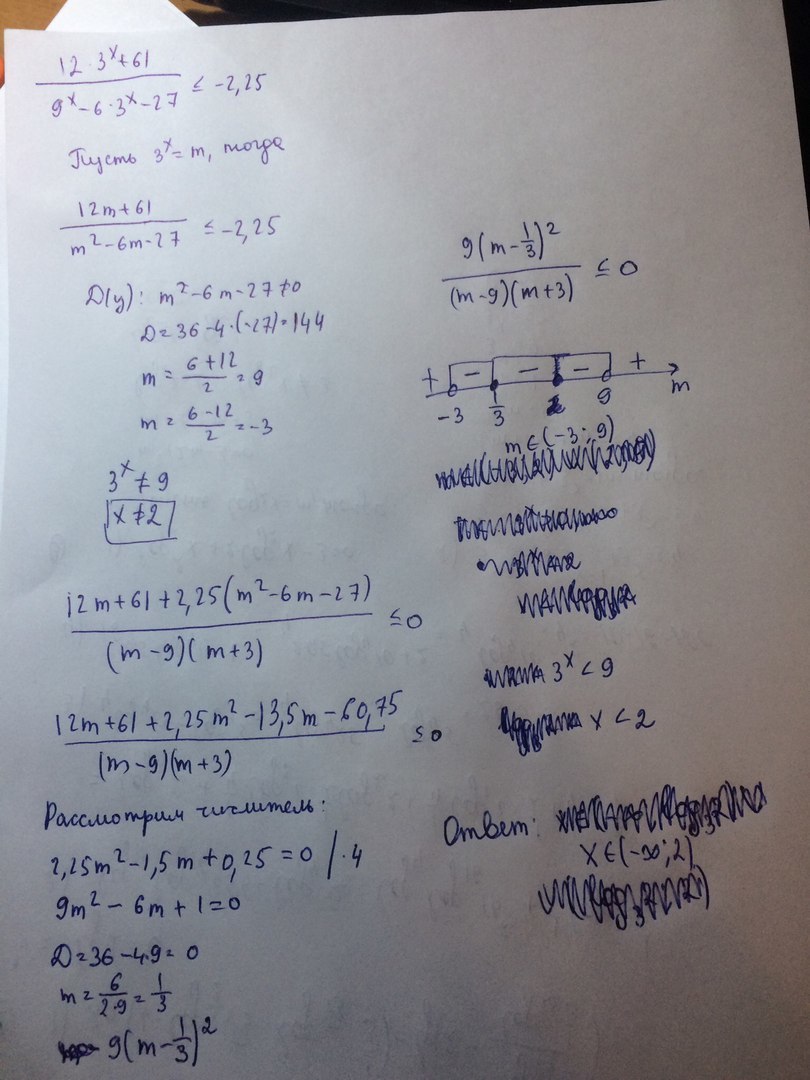 12·3^x+61 / 9^x-6·3^x-27 ≤ -2,25
Пусть 3^x=m, тогда
12m+61 / m²-6m-27 ≤ -2,25
D(y): m²-6m-27≠0
D=36-4·(-27)=144
m = 6+12 / 2 = 9
m = 6-12 / 2 = -3
3^x ≠ 9
x ≠ 2
12m+61+2,25(m²-6m-27) / (m-9)(m+3) ≤ 0
12m+61+2,25m²-13,5m-60,75 / (m-9)(m+3) ≤ 0
Рассмотрим числитель:
2,25m²-1,5m+0,25=0 /·4
9m²-6m+1=0
D=36-4·9=0
m = 6 / 2·9 = 1/3
9(m-1/3)²
9(m-1/3)² / (m-9)(m+3) ≤ 0
+ - - - +
-3 1/3 9 m
m∈(-3;9)
3^x<9
x<2
Ответ:
x∈(-∞;2)